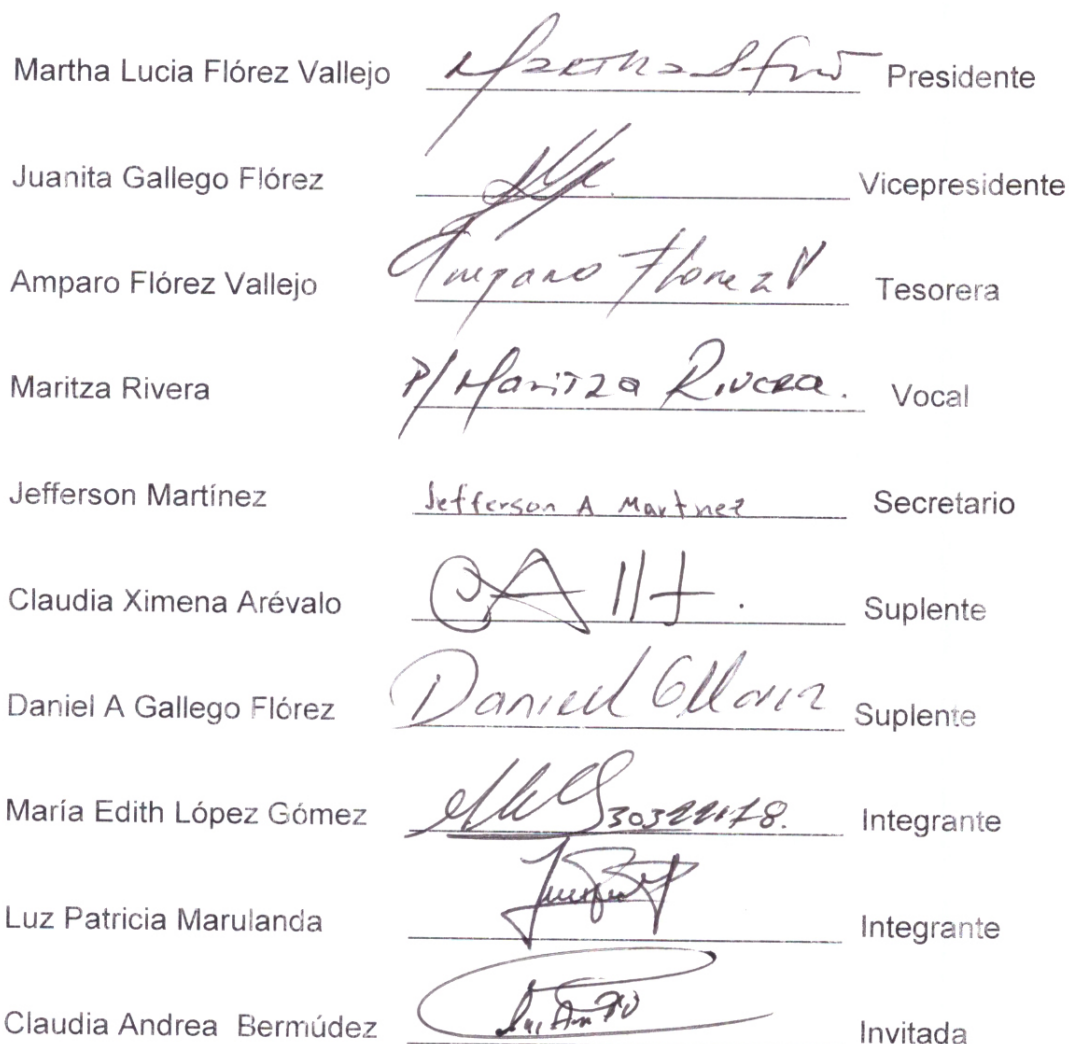 Martha Lucia Flórez Vallejo Martha Presidente
Juanita Gallego Flórez Vicepresidente
Amparo Flórez Vallejo Amparo Florez V Tesorera
Maritza Rivera P/ Maritza Rivera. Vocal
Jefferson Martínez Jefferson A Martnez Secretario
Claudia Ximena Arévalo Suplente
Daniel A Gallego Flórez Daniel Suplente
María Edith López Gómez Integrante
Luz Patricia Marulanda Integrante
Claudia Andrea Bermúdez Invitada